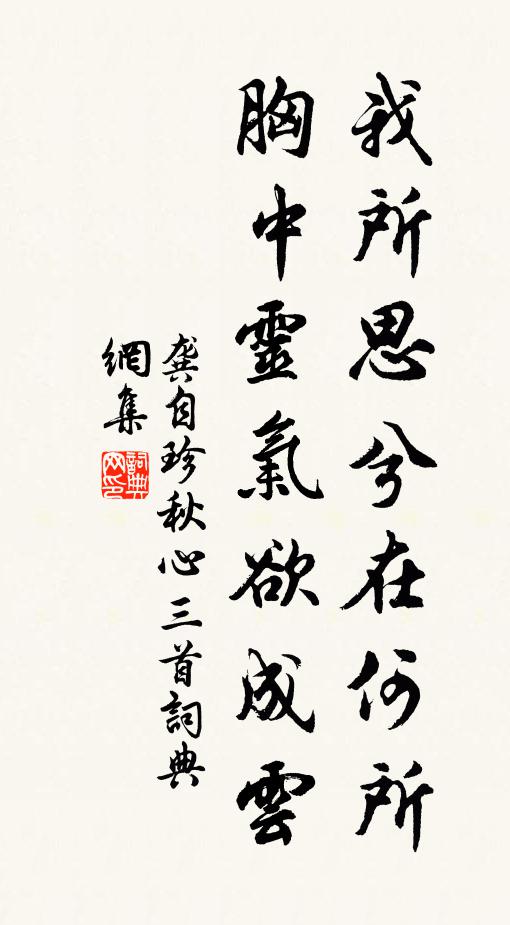 我所思兮在何所
胸中靈氣欲成雲
龔自珍秋心三首詞典
網集
詞典
网印